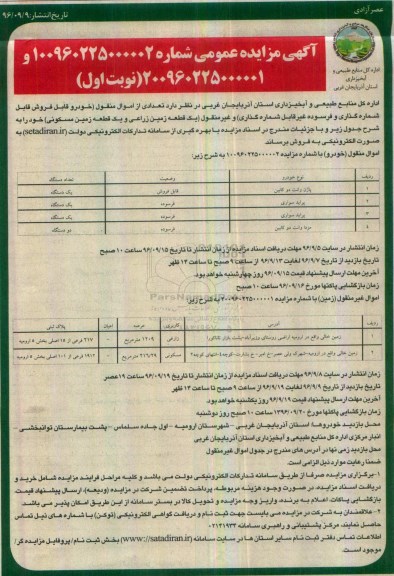 عصر آزادی
تاریخ انتشار: ۹۶/۰۹/۹
اداره کل منابع طبیعی و
آبخیزداری
استان آذربایجان غربی
آگهی مزایده عمومی شماره ۱۰۰۹۶۰۲۲۵۰۰۰۰۰۲ و
۲۰۰۹۶۰۲۲۵۰۰۰۰۰۱ (نوبت اول)
اداره کل منابع طبیعی و آبخیزداری استان آذربایجان غربی در نظر دارد تعدادی از اموال منقول (خودرو قابل فروش قابل
شماره گذاری و فرسوده غیرقابل شماره گذاری) و غیرمنقول (یک قطعه زمین زراعی و یک قطعه زمین مسکونی) خود را به
شرح جدول زیر و با جزئیات مندرج در اسناد مزایده با بهره گیری از سامانه تدارکات الکترونیکی دولت (setadiran.ir) به
صورت الکترونیکی به فروش برساند
اموال منقول (خودرو) با شماره مزایده ۱۰۰۹۶۰۲۲۵۰۰۰۰۰۲ به شرح زیر:
ردیف نوع خودرو وضعیت تعداد دستگاه
۱ وانت دو کابین قابل فروش یک دستگاه
۲ پراید سواری فرسوده یک دستگاه
۳ پراید سواری فرسوده یک دستگاه
۴ مزدا وانت دو کابین فرسوده دو دستگاه
زمان انتشار در سایت ۹۶/۹/۵ مهلت دریافت اسناد مزایده از زمان انتشار تا تاریخ ۹۶/۰۹/۱۵ ساعت ۱۰ صبح
تاریخ بازدید از تاریخ ۹۶/۹/۷ لغایت ۹۶/۹/۱۳ از ساعت ۹ صبح تا ساعت ۱۴ ظهر
آخرین مهلت ارسال پیشنهاد قیمت ۹۶/۰۹/۱۵ روز چهارشنبه خواهد بود.
زمان بازگشایی پاکتها مورخ ۹۶/۰۹/۱۶ ساعت ۱۰ صبح
اموال غیر منقول (زمین) با شماره مزایده ۲۰۰۹۶۰۲۲۵۰۰۰۰۰۱ به شرح زیر:
ردیف آدرس کاربری عرصه اعیان پلاک ثبتی
۱ زمین خالی واقع در ارومیه اراضی روستای زراعی ۱۲۰۹ مترمربع - ۲۱۷ فرعی از ۱۵ اصلی بخش ۵ ارومیه
۲ زمین خالی واقع در ارومیه مسکونی ۲۱۶/۲۹ مترمربع - ۱۹۱۲ فرعی از ۱۰۲ اصلی بخش ۵ ارومیه
زمان انتشار در سایت ۹۶/۹/۸ مهلت دریافت اسناد مزایده از زمان انتشار تا تاریخ ۹۶/۰۹/۱۹ ساعت ۱۹ عصر
تاریخ بازدید از تاریخ ۹۶/۹/۹ لغایت ۹۶/۹/۱۹ از ساعت ۹ صبح تا ساعت ۱۴ ظهر
آخرین مهلت ارسال پیشنهاد قیمت ۹۶/۰۹/۱۹ روز یکشنبه خواهد بود.
زمان بازگشایی پاکتها مورخ ۱۳۹۶/۰۹/۲۰ ساعت ۱۰ صبح روز دوشنبه
محل بازدید خودروها: استان آذربایجان غربی - شهرستان ارومیه - اول جاده سلماس - پشت بیمارستان توانبخشی -
انبار مرکزی اداره کل منابع طبیعی و آبخیزداری استان آذربایجان غربی
محل بازدید زمی نها در آدرس های مندرج در جدول اموال غیر منقول
ضمنا رعایت موارد ذیل الزامی است.
۱- برگزاری مزایده صرفا از طریق سامانه تدارکات الکترونیکی دولت می باشد و کلیه مراحل فرایند مزایده شامل خرید و
دریافت اسناد مزایده، در صورت وجود هزینه مربوطه، پرداخت تضمین شرکت در مزایده (ودیعه)، ارسال پیشنهاد قیمت،
بازگشایی پاکات، اعلام به برنده، واریز وجه مزایده و تحویل کالا در بستر سامانه از این طریق امکان پذیر می باشد.
۲- علاقمندان به شرکت در مزایده می بایست جهت ثبت نام و دریافت گواهی الکترونیکی (توکن) با شماره های ذیل تماس
حاصل نمایند. مرکز پشتیبانی و راهبری سامانه ۰۲۱۴۱۹۳۴
اطلاعات تماس دفتر ثبت نام سایر استان ها در سایت سامانه (www://satadiran.ir) بخش ثبت نام/ پروفایل مزایده گر/
موجود است.